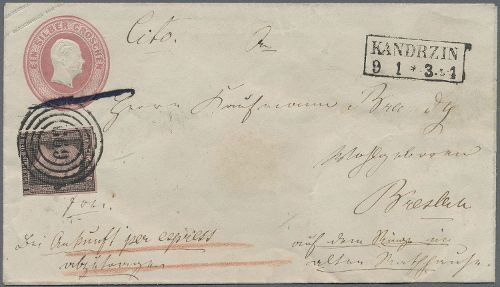 EIN SILBER GROSCHEN
Cito.
KANDRZIN
9 1 * 3-4
Herrn Kaufmann
Wohlgeboren
Breslau
frei.
Bei Ankunft per express
abzutragen
auf dem Ringe im
alten Rathhause